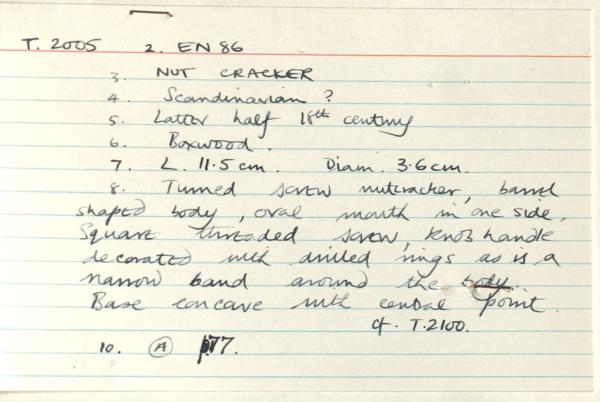 T. 2005 2. EN 86
3. NUT CRACKER
4. Scandinavian ?
5. Latter half 18th century
6. Boxwood.
7. L. 11.5 cm. Diam. 3.6 cm.
8. Turned screw nutcracker, barrel
shaped body, oval mouth in one side.
Square threaded screw, knob handle
decorated with drilled rings as is a
narrow band around the body.
Base concave with central point.
cf. T.2100.
10. A 77.